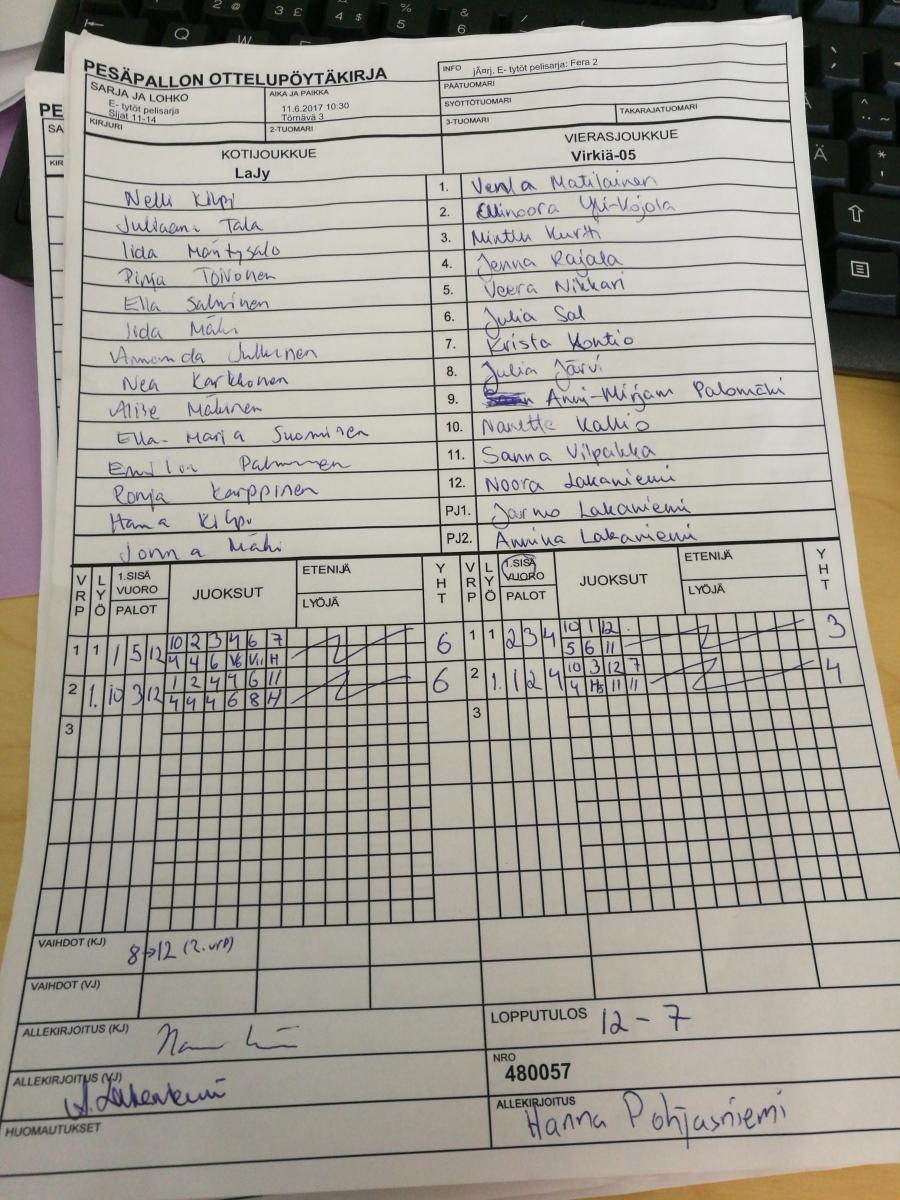 PESÄPALLON OTTELUPÖYTÄKIRJA
SARJA JA LOHKO
E- tytöt pelisarja
Sijat 11-14
KIRJURI
AIKA JA PAIKKA
11.6.2017 10:30
Törnävä 3
2-TUOMARI
INFO järj. E- tytöt pelisarja: Fera 2
PÄÄTUOMARI
SYÖTTÖTUOMARI
3-TUOMARI TAKARAJATUOMARI
KOTIJOUKKUE VIERASJOUKKUE
LaJy Virkiä-05
Nelli Kilpi 1. Venla Matilainen
Juliaana Tala 2. Ellinoora Yli-Kojola
Iida Mäntysalo 3. Minttu Kurtti
Pinja Toivonen 4. Jenna Rajala
Ella Salminen 5. Veera Nikkari
Iida Mäki 6. Julia Sal
Amanda Julkunen 7. Krista Kontio
Nea Karkkonen 8. Julia Järvi
Alise Mäkinen 9. Anni-Mirjam Palomäki
Ella-Maria Suominen 10. Nanette Kallio
Palmunen 11. Sanna Vilpakka
Ronja Karppinen 12. Noora Lakaniemi
Hanna Kilpi PJ1. Jarmo Lakaniemi
Jonna Mäki PJ2. Annina Lakaniemi
VRP LYÖ 1.SISÄ VUORO PALOT JUOKSUT ETENIJÄ LYÖJÄ YHT VRP LYÖ 1.SISÄ VUORO PALOT JUOKSUT ETENIJÄ LYÖJÄ YHT
1 1 1 5 12 10 2 3 4 6 7 6 1 1 2 3 4 10 1 12 3
4 4 6 V6 H 5 6 11
2 1. 10 3 12 1 2 4 4 6 11 6 2 1. 1 2 4 10 3 12 7 4
4 4 4 6 8 H 4 H5 11 11
3 3
VAIHDOT (KJ) 8→12 (2.vrp)
VAIHDOT (VJ)
ALLEKIRJOITUS (KJ)
LOPPUTULOS 12 - 7
ALLEKIRJOITUS (VJ) A. Lakaniemi
NRO
480057
HUOMAUTUKSET
ALLEKIRJOITUS
Hanna Pohjasniemi